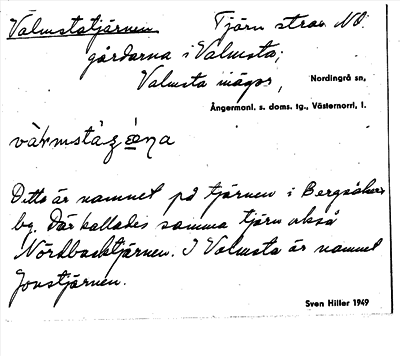 Valmstatjärnen Tjärn strax NO.
gårdarna i Valmsta;
Valmsta mägor, Nordingrå sn,
Ångermanl. s. doms. tg., Västernorrl. l.
Detta är namnet på tjärnen i Bergsåker
by. Där kallades samma tjärn också
Nordbacktjärnen. I Valmsta är namnet
Jonstjärnen.
Sven Hiller 1949